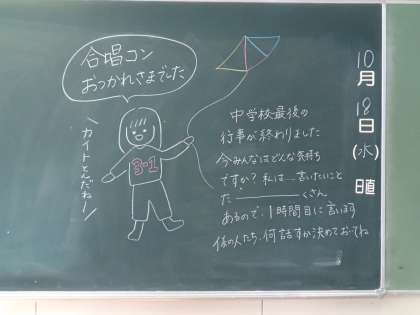 合唱コン
おつかれさまでした
\カイトとんだねー/
3-1
中学校最後の
行事が終わりました
今みんなはどんな気持ち
ですか？私は…言いたいこと
だ―――――くさん
あるので、1時間目に言います
係の人たち、何話すか決めておいてね
10月18日(水)